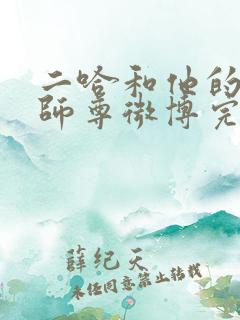 二哈和他的
師尊微博完
薛纪天
未经同意禁止转载